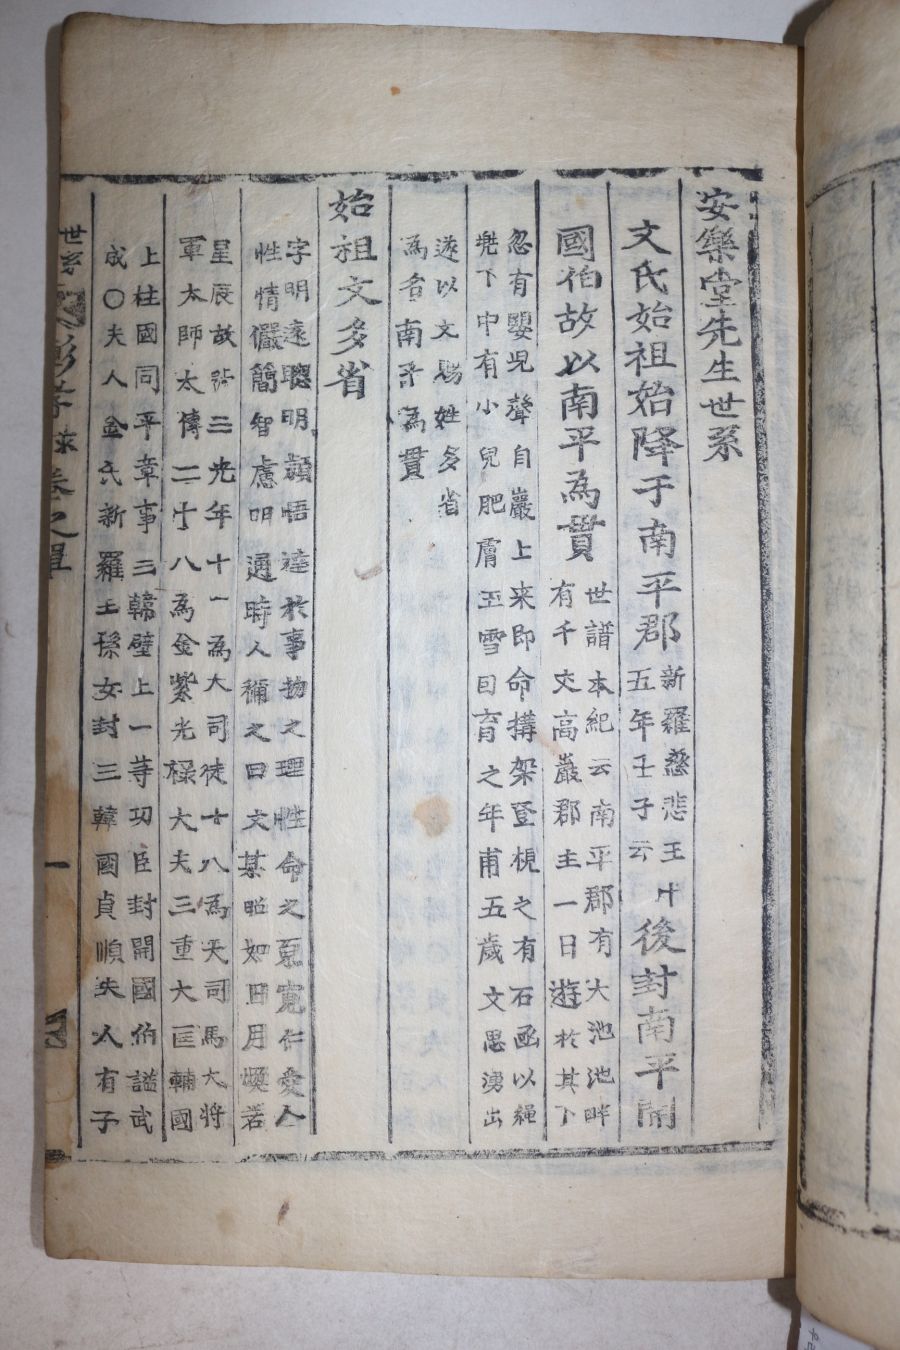 安樂堂先生世系
文氏始祖始降于南平郡
新羅慈悲王廾
五年壬子云
後封南平開
國伯故以南平為貫
世譜本紀云南平郡有大池池畔
有千丈高巖郡主一日遊於其下
忽有嬰兒聲自巖上来即命搆架登梘之有石函以繩
兠下中有小兒肥膚玉雪因育之年甫五歲文思湧出
遂以文賜姓多省
為名南平為貫
始祖文多省
字明遠聰明頴悟達於事物之理性命之寃寬仁愛人
性情儼簡智慮明通時人稱之曰文某昭如日月燦若
星辰故 三光年十一為大司徒十八為大司馬大將
軍太師太傅二十八為金紫光祿大夫三重大匡輔國
上柱國同平章事三韓壁上一等功臣封開國伯諡武
成〇夫人金氏新羅王孫女封三韓國貞順夫人有子
世系 卷之 一